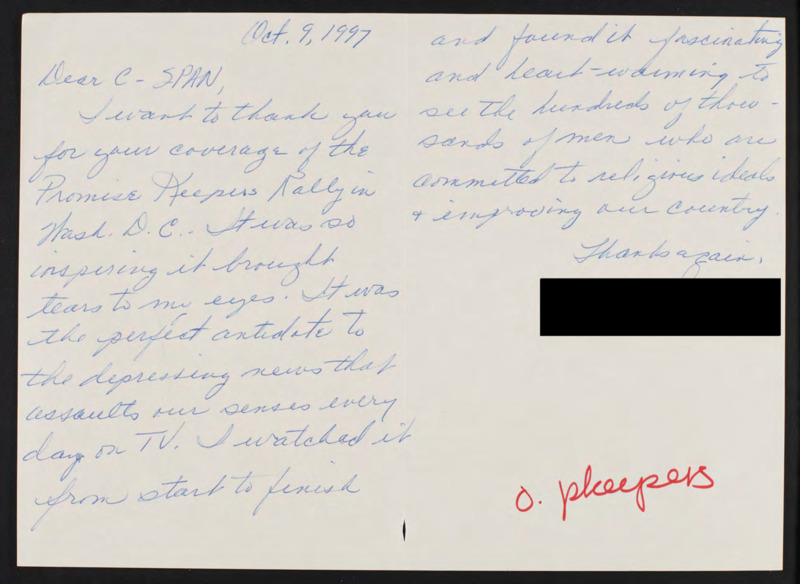 Oct. 9, 1997
Dear C-SPAN,
I want to thank you
for your coverage of the
Promise Keepers Rally in
Wash. D.C.. It was so
inspiring it brought
tears to my eyes. It was
the perfect antidote to
the depressing news that
assaults our senses every
day on TV. I watched it
from start to finish
and found it fascinating
and heart-warming to
see the hundreds of thou-
sands of men who are
committed to religious ideals
+ improving our country.
Thanks again,
o. pkeepers